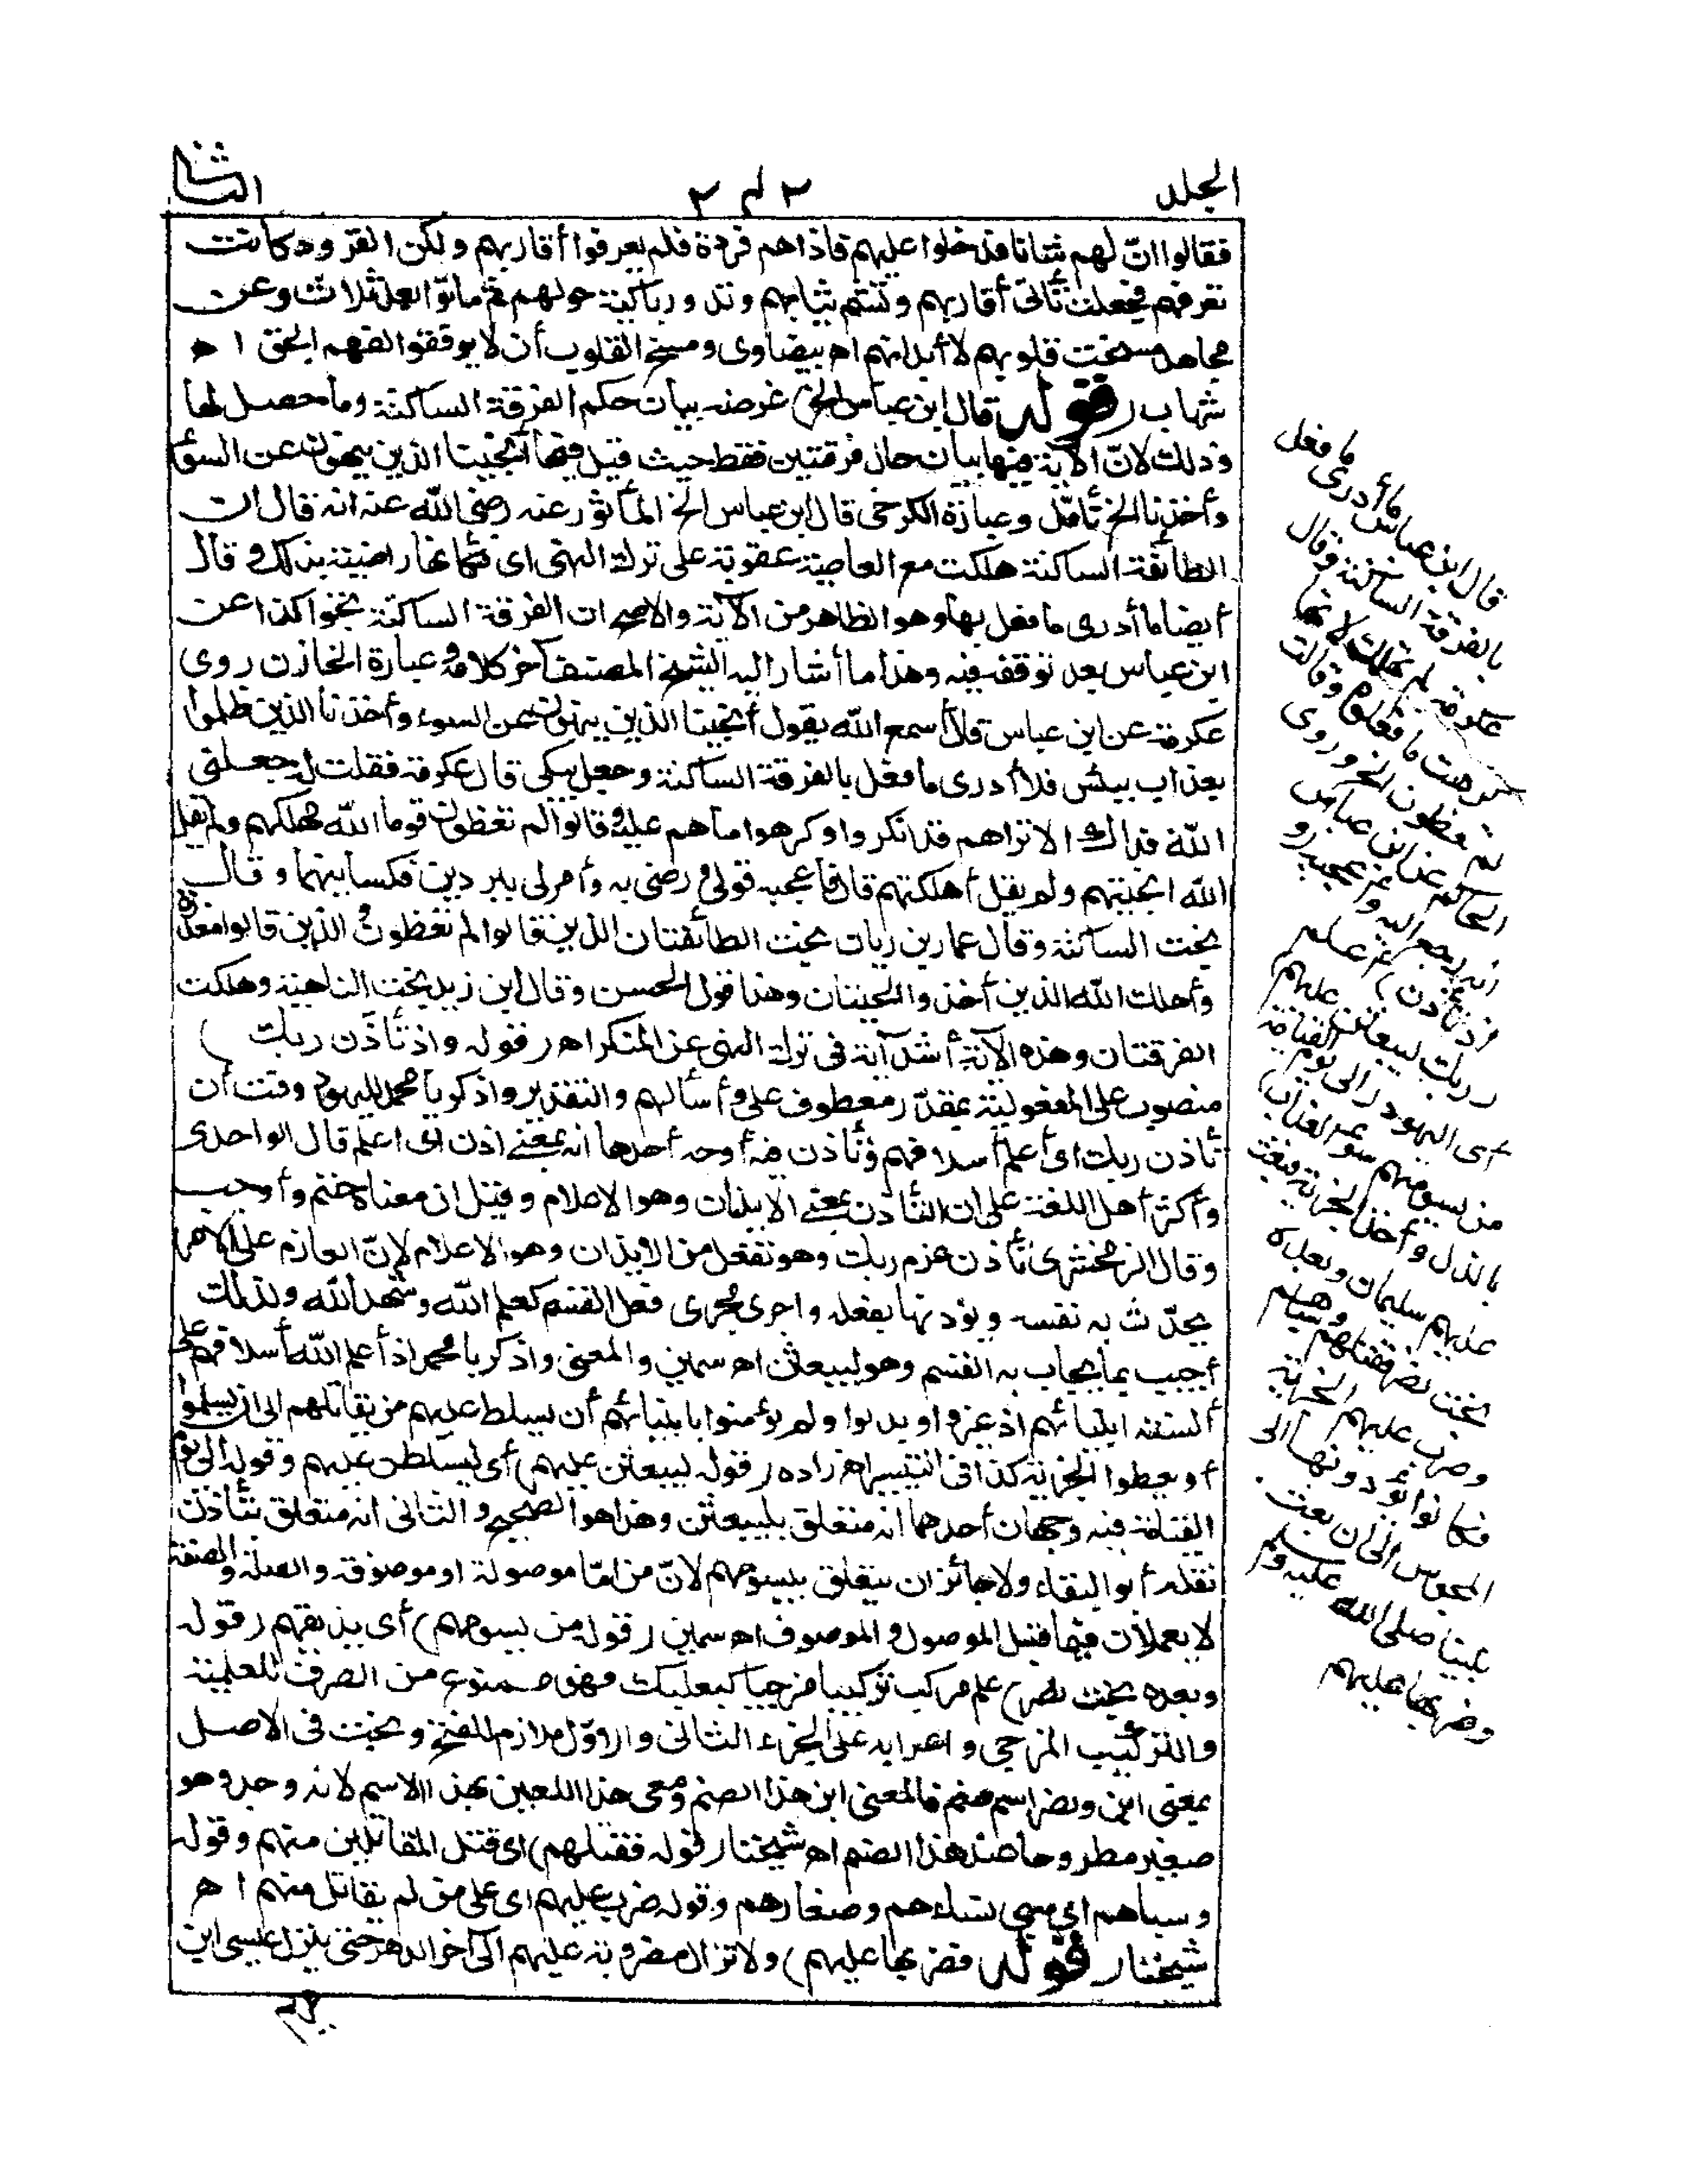 الجلد ٢٤٢ الثانى
فقالوا انّ لهم شانا فدخلوا عليهم فاذا هم قردة فلم يعرفوا أقاربهم ولكن القرود كانت
تعرفهم فجعلت تأتى أقاربهم وتشم ثيابهم وتدور باكية حولهم ثم ماتوا بعد ثلاث وعن
مجاهد مسخت قلوبهم لا أبدانهم اه بيضاوى ومسخ القلوب أن لا يوفقوا لفهم الحق ا ه
شهاب (قوله قال ابن عباس الخ) غرضه بيان حكم الفرقة الساكتة وما حصل لها
وذلك لانّ الآية فيها بيان حال فرقتين فقط حيث قيل فيها أنجينا الذين ينهون عن السوء
وأخذنا الخ تأمّل وعبارة الكرخى قال ابن عباس الخ المأثور عنه رضى الله عنه انه قال ان
الطائفة الساكتة هلكت مع العاصية عقوبة على ترك النهى اى فكأنها راضية بذلك وقال
أيضا ما أدرى ما فعل بها وهو الظاهر من الآية والاصح ان الفرقة الساكتة نجوا كذا عن
ابن عباس بعد توقف فيه وهذا ما أشار اليه الشيخ المصنف آخر كلامه وعبارة الخازن روى
عكرمة عن ابن عباس قال أسمع الله يقول أنجينا الذين ينهون عن السوء وأخذنا الذين ظلموا
بعذاب بيئس فلا أدرى ما فعل بالفرقة الساكتة وجعل يبكى قال عكرمة فقلت له جعلنى
الله فداك الا تراهم قد انكروا وكرهوا ما هم عليه وقالوا لم تعظون قوما الله مهلكهم ولم يقل
الله انجيتهم ولم يقل أهلكتهم قال فأعجبه قولى ورضى به وأمر لى ببردين فكسانيهما وقال
نجت الساكتة وقال عمار بن ربان نجت الطائفتان الذين قالوا لم تعظون والذين قالوا معذرة
وأهلك الله الذين أخذوا الحيتان وهذا قول الحسن وقال ابن زيد نجت الناهية وهلكت
الفرقتان وهذه الآية أشد آية فى ترك النهى عن المنكر اه (قوله واذ تأذّن ربك)
منصوب على المفعولية بمقدّر معطوف على وأسألهم والتقدير واذكر يا محمد لليهود وقت أن
تأذن ربك اى أعلم أسلافهم وتأذن فيه أوجه أحدها انه بمعنى اذن اى اعلم قال الواحدى
وأكثر أهل اللغة على ان التأذن بمعنى الايذان وهو الاعلام وقيل ان معناه حتم وأوجب
وقال الزمخشرى تأذن عزم ربك وهو تفعل من الايذان وهو الاعلام لانّ العازم على الامر
يحدّث به نفسه ويؤذنها بفعله واجرى مجرى فعل القسم كعلم الله وشهد الله ولذلك
أجيب بما يجاب به القسم وهو ليبعثن اه سمين والمعنى واذكر يا محمد اذ أعلم الله أسلافهم على
ألسنة انبيائهم ان غيروا وبدلوا ولم يؤمنوا بانبيائهم أن يسلط عليهم من يقاتلهم الى ان يسلموا
أو يعطوا الجزية كذا فى التيسير اه زاده (قوله ليبعثن عليهم) أى ليسلطن عليهم وقوله الى يوم
القيامة فيه وجهان أحدهما انه متعلق بليبعثن وهذا هو الصحيح والثانى انه متعلق بتأذن
نقله أبو البقاء ولا جائز ان يتعلق بيسومهم لانّ من امّا موصولة او موصوفة والصلة والصفة
لا يعملان فيما قبل الموصول والموصوف اه سمين (قوله من يسومهم) أى يذيقهم (قوله
وبعده بخت نصر) علم مركب تركيبا مزجيا كبعلبك فهو ممنوع من الصرف للعلمية
والتركيب المزجى واعرابه على الجزء الثانى والاوّل ملازم للفتح وبخت فى الاصل
بمعنى ابن ونصر اسم صنم فالمعنى ابن هذا الصنم وسمى هذا اللعين بهذا الاسم لانه وجد وهو
صغير مطروحا عند هذا الصنم اه شيخنا (قوله فقتلهم) اى قتل المقاتلين منهم وقوله
وسباهم اى سبى نساءهم وصغارهم وقوله ضرب عليهم اى على من لم يقاتل منهم ا ه
شيخنا (قوله فضربها عليهم) ولا تزال مضروبة عليهم الى آخر الدهر حتى ينزل عيسى ابن
مريم
قال ابن عباس ما أدرى ما فعل
بالفرقة الساكتة وقال
عكرمة لم تهلك لانها
كرهت ما فعلوه وقالت
لم تعظون الخ وروى
الحاكم عن ابن عباس
انه رجع اليه وأعجبه (و
اذ تأذن) أعلم
(ربك ليبعثن عليهم)
أى اليهود (الى يوم القيامة
من يسومهم سوء العذاب)
بالذل وأخذ الجزية فبعث
عليهم سليمان وبعده
بخت نصر فقتلهم وسباهم
وضرب عليهم الجزية
فكانوا يؤدونها الى
المجوس الى ان بعث
نبينا صلى الله عليه وسلم
وضربها عليهم